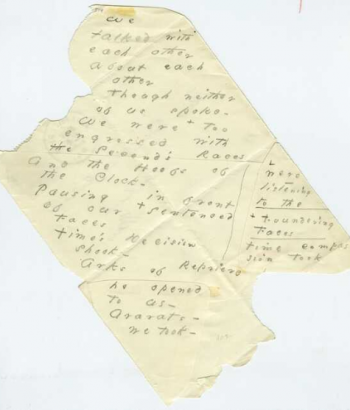 We
talked with
each other
about each
other
Though neither
of us spoke -
We were + too
engrossed with
the Second's Races
And the Hoofs of
the Clock -
Pausing in front
of our + Sentenced
Faces
Time's Decision
shook -
Arks of Reprieve
he opened
to us -
Ararats -
we took -
+ were
listening
to the
+ foundering
Faces
time compas
sion took